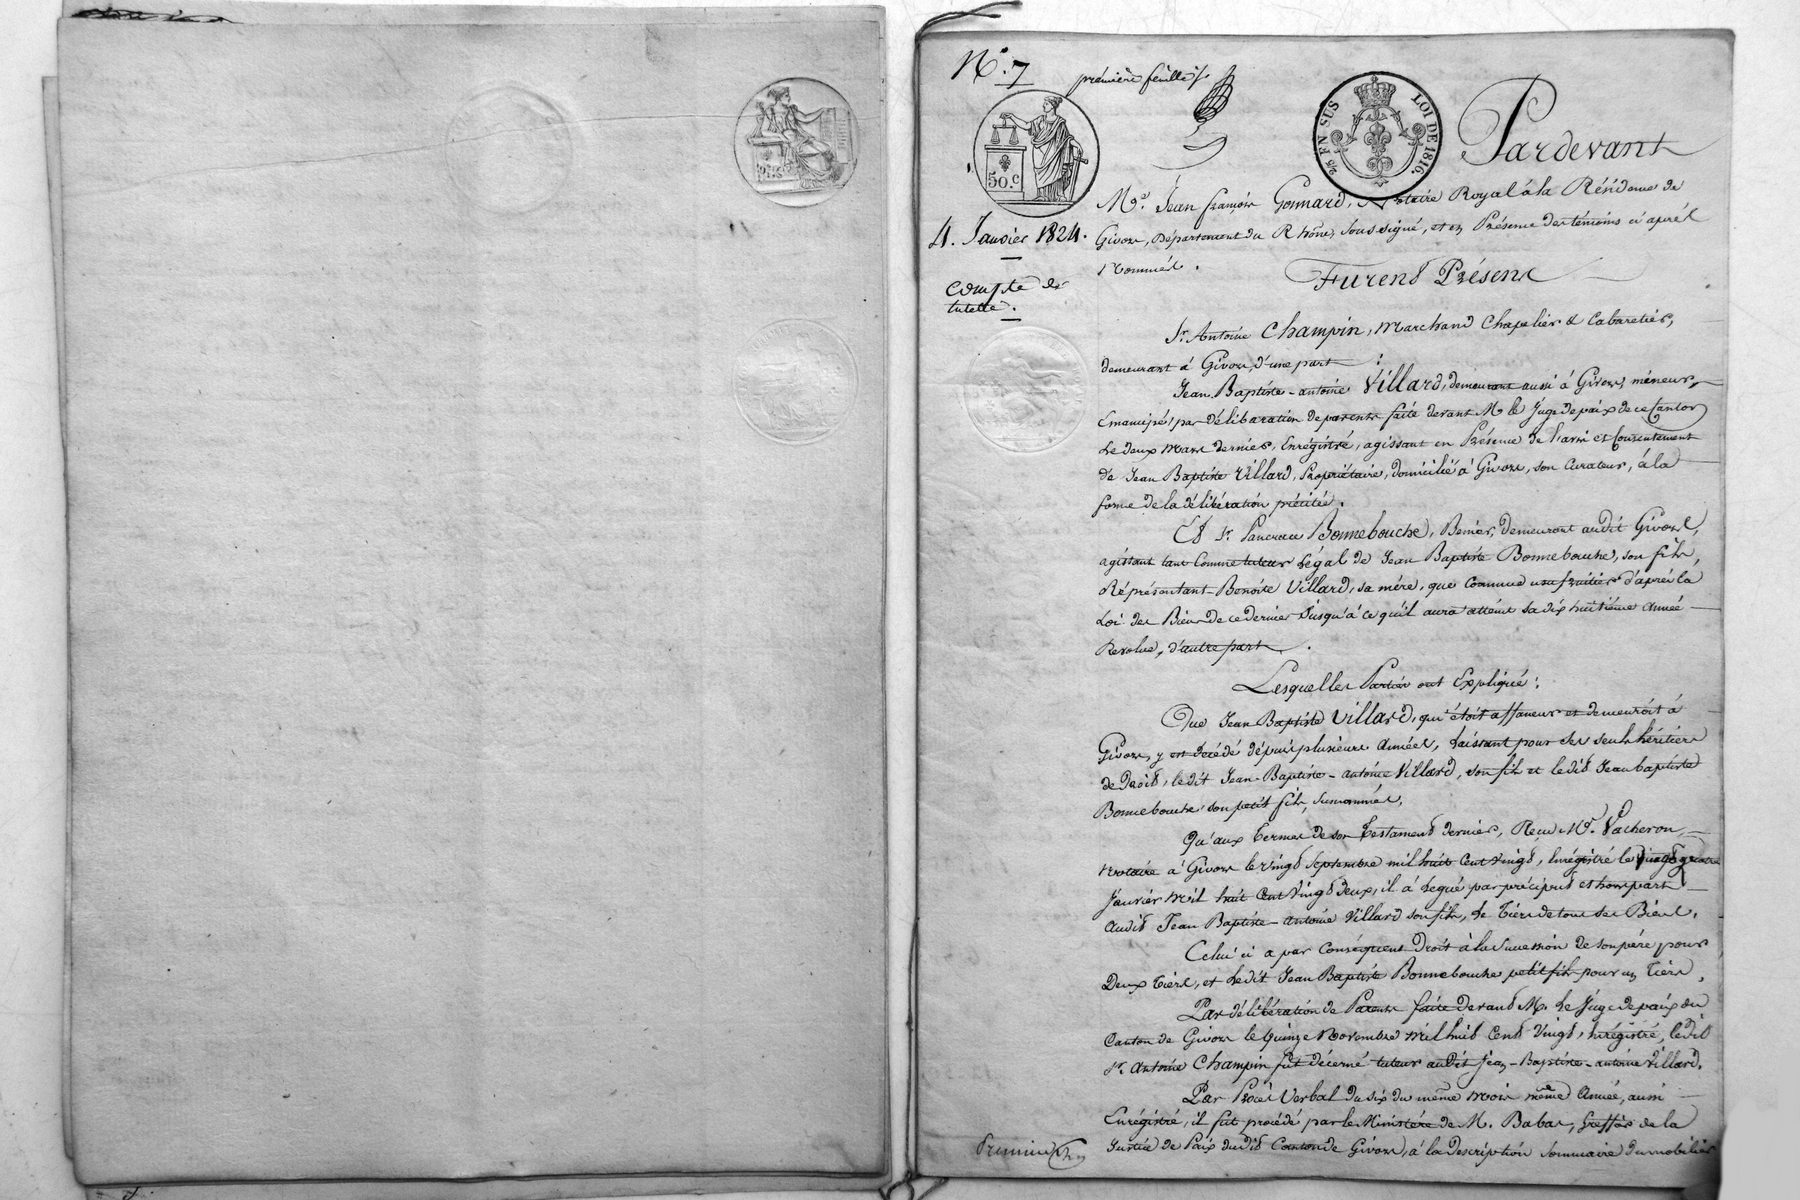 N.° 7
première feuille /.
50.c
25 EN SUS
LOI DE 1816.
Pardevant
4. Janvier 1824.
Compte de
tutelle.
M.e Jean françois Gonnard, Notaire Royal à la Résidence de
Givors, Département du Rhône, soussigné, et en Présence des témoins ci après
Nommés.
Furent Présens
Sr. Antoine Champin, Marchand Chapelier & Cabaretier,
demeurant à Givors, d'une part :
Jean Baptiste-antoine Villard, demeurant aussi à Givors, mineur
Emancipé, par délibération de parents faite devant M. le Juge de paix de ce Canton
Le deux Mars dernier, Enrégistré, agissant en Présence de l'avis et Consentement
de Jean Baptiste Villard, Propriétaire, domicilié à Givors, son Curateur, à la
forme de la délibération précitée.
Et Sr. Pancrace Bonnebouche, demeurant audit Givors,
agissant tant Comme tuteur Légal de Jean Baptiste Bonnebouche, son fils,
Réprésentant Benoite Villard, sa mère, que Comme usufruitier d'après la
Loi des Biens de ce dernier Jusqu'à ce qu'il aura atteint sa dix huitième Année
Revolue, d'autre part.
Lesquelles Parties ont Expliqué :
Que Jean Baptiste Villard, qui étoit affaneur et demeuroit à
Givors, y est décédé dépuis plusieurs Années, Laissant pour ses seuls héritiers
de Droit, ledit Jean-Baptiste-antoine Villard, son fils et ledit Jean baptiste
Bonnebouche son petit fils, surnommés.
Qu'aux termes de son Testament dernier, Reçu Me. Vacheron,
Notaire à Givors le vingt Septembre mil huit Cent Vingt, Enrégistré le vingt quatre
Janvier Mil huit Cent Vingt Deux, il à Legué par préciput et hors part
Audit Jean Baptiste-antoine Villard son fils, Le Tiers de tous ses Biens.
Celui ci a par Conséquent Droit à la Succession de son père pour
Deux Tiers, et ledit Jean Baptiste Bonnebouche petit fils pour un Tiers.
Par délibération de Parents faite devant M. Le Juge de paix du
Canton de Givors le Quinze Novembre Mil huit Cent Vingt, Enrégistré, ledit
Sr. Antoine Champin fut décerné tuteur audit Jean-Baptiste-antoine Villard.
Par Procès Verbal du six du même Mois même Année, aussi
Enrégistré, il fut procédé par le Ministère de M. Babas, Greffier de la
Justice de Paix dudit Canton de Givors, à la Description Sommaire du mobilier